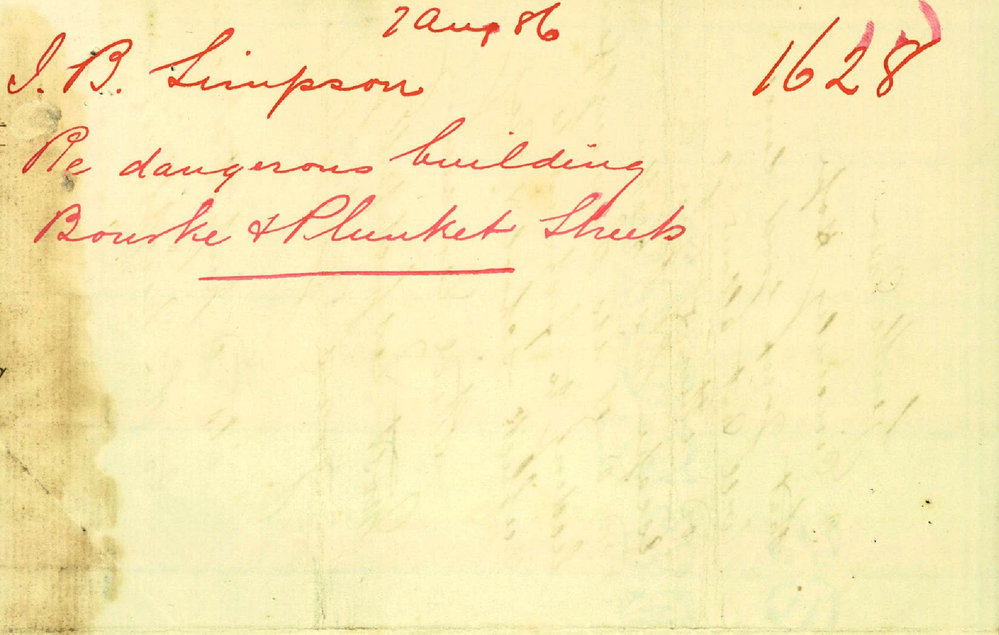 7 Aug 86
J. B. Simpson
1628
Re dangerous building
Bourke & Plunket Streets